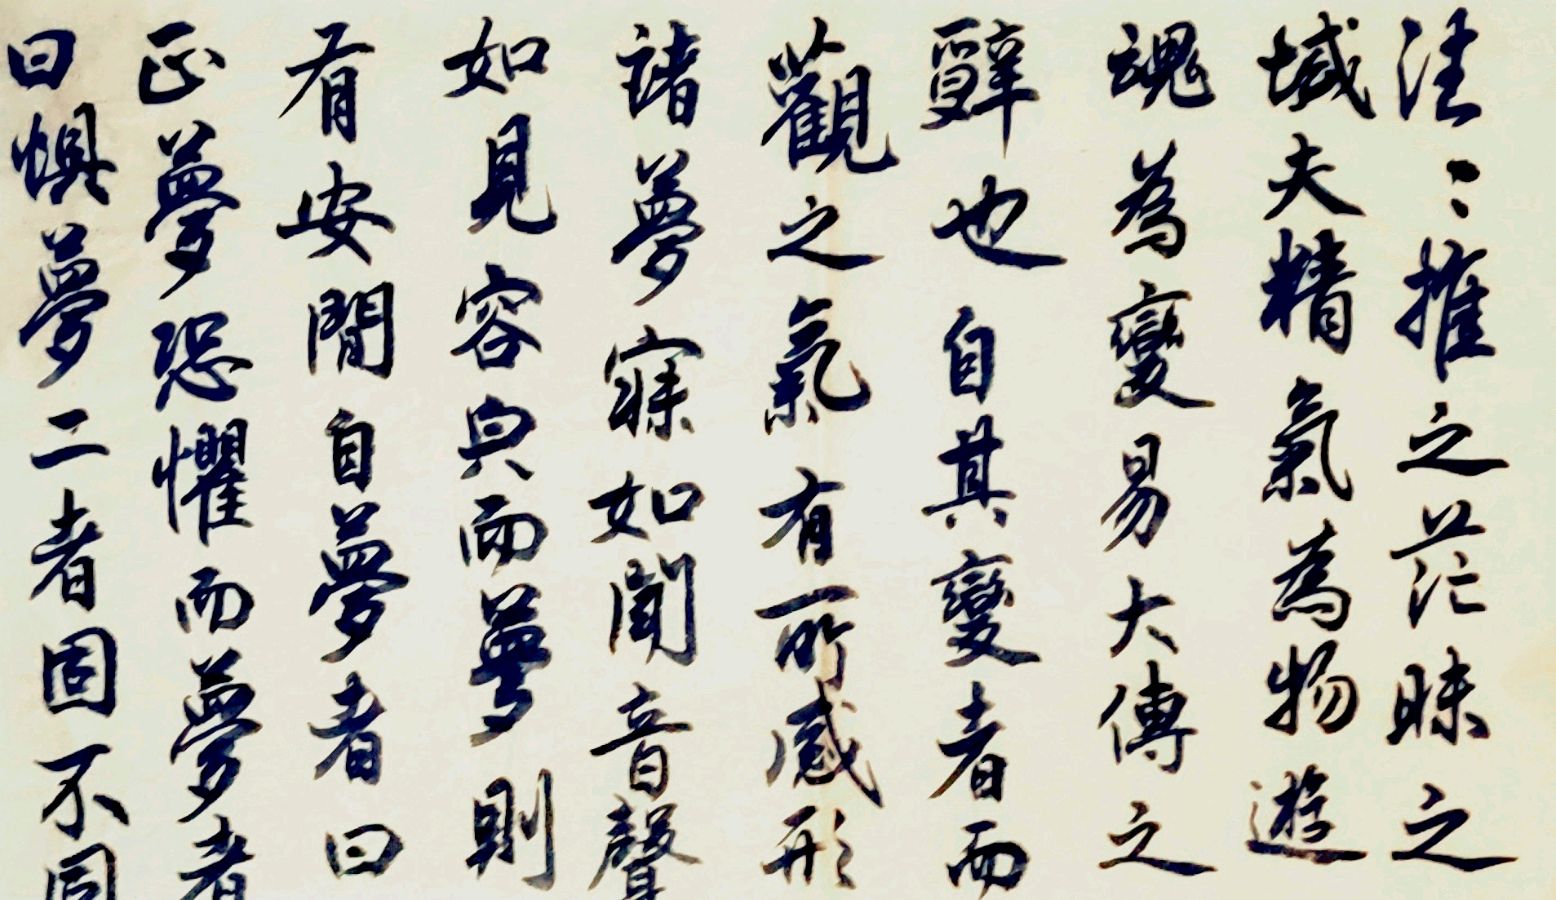 往〻推之茫昧之
域夫精氣為物遊
魂為變易大傳之
辭也自其變者而
觀之氣有所感形
諸夢寐如聞音聲
如見容皃而夢則
有安閒自夢者曰
正夢恐懼而夢者
曰惧夢二者固不同